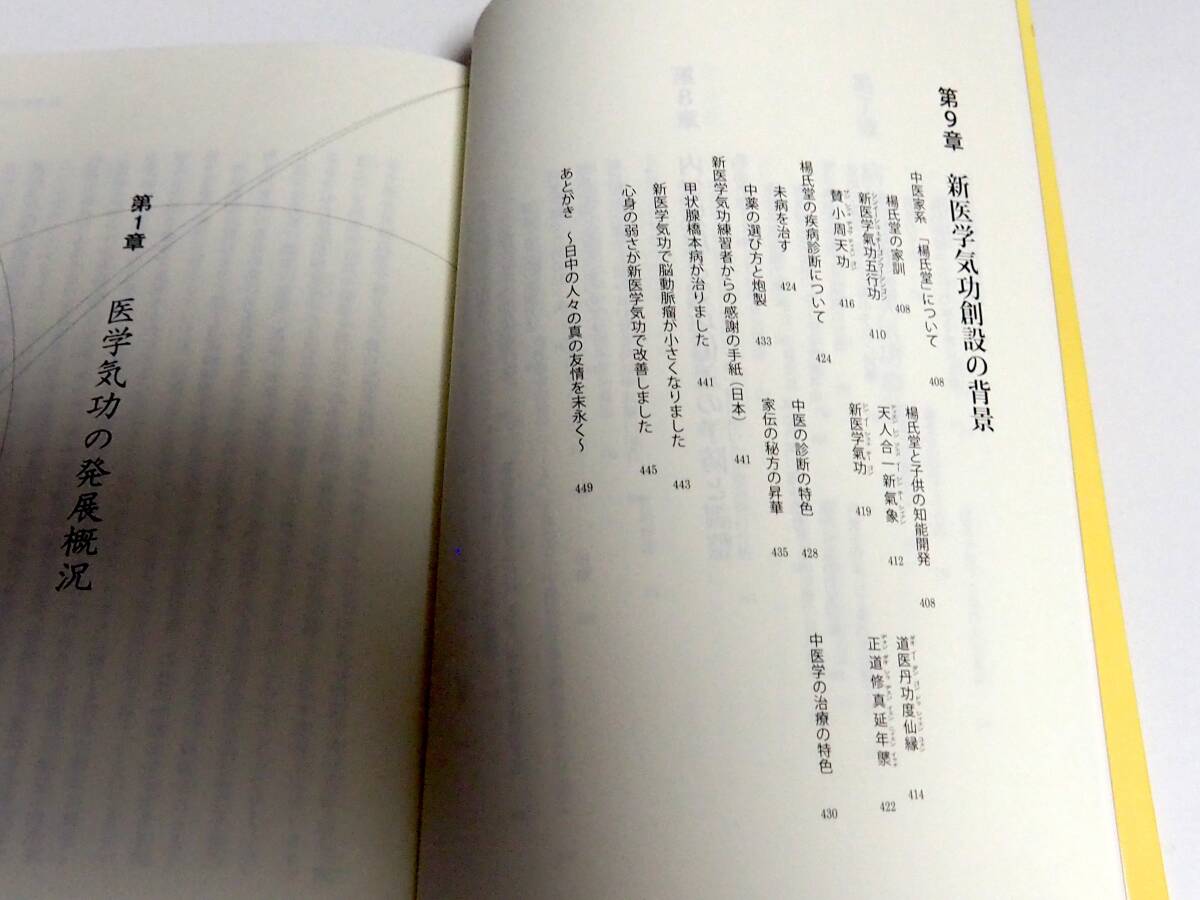 第9章 新医学気功創設の背景
中医家系 「楊氏堂」について 408
楊氏堂と子供の知能開発 408
楊氏堂の家訓 408
天人合一新氣象 412
道医丹功度仙縁 414
新医学氣功五行功 410
新医学氣功 419
正道修真延年
422
賛小周天功 416
楊氏堂の疾病診断について 424
中医の診断の特色 428
中医学の治療の特色 430
未病を治す 424
家伝の秘方の昇華 435
中薬の選び方と炮製 433
新医学気功練習者からの感謝の手紙(日本) 441
甲状腺橋本病が治りました 441
新医学気功で脳動脈瘤が小さくなりました 443
心身の弱さが新医学気功で改善しました 445
あとがき ～日中の人々の真の友情を末永く～ 449
第1章 医学気功の発展概況